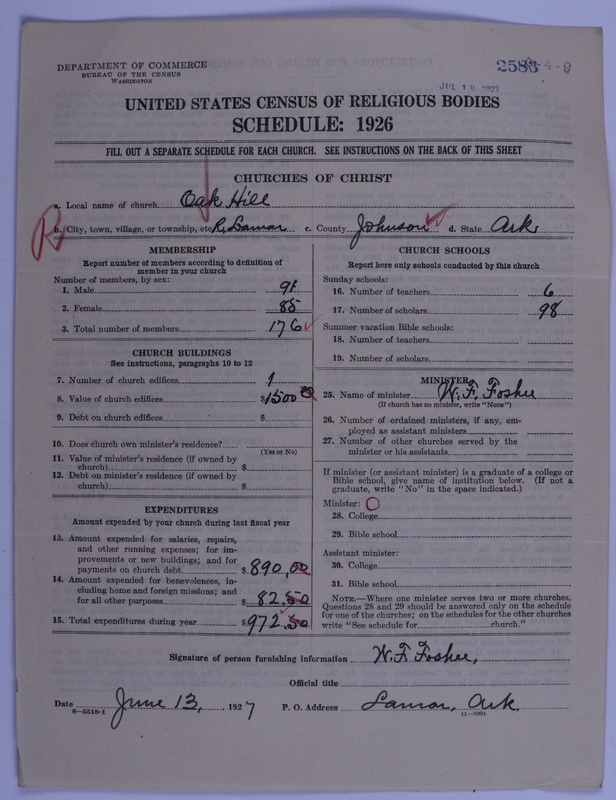 DEPARTMENT OF COMMERCE
BUREAU OF THE CENSUS
WASHINGTON
2583
4-9
JUL 19 1927
UNITED STATES CENSUS OF RELIGIOUS BODIES
SCHEDULE: 1926
FILL OUT A SEPARATE SCHEDULE FOR EACH CHURCH. SEE INSTRUCTIONS ON THE BACK OF THIS SHEET
CHURCHES OF CHRIST
a. Local name of church Oak Hill
R
b. City, town, village, or township, etc. R. Lamar c. County Johnson d. State Ark.
MEMBERSHIP
Report number of members according to definition of
member in your church
Number of members, by sex:
1. Male 91
2. Female 85
3. Total number of members 176
CHURCH BUILDINGS
See instructions, paragraphs 10 to 12
7. Number of church edifices 1
8. Value of church edifices $1500
9. Debt on church edifices $
10. Does church own minister's residence?
(Yes or No)
11. Value of minister's residence (if owned by
church) $
12. Debt on minister's residence (if owned by
church) $
EXPENDITURES
Amount expended by your church during last fiscal year
13. Amount expended for salaries, repairs,
and other running expenses; for im-
provements or new buildings; and for
payments on church debt $890,00
14. Amount expended for benevolences, in-
cluding home and foreign missions; and
for all other purposes $82.50
15. Total expenditures during year $972.50
CHURCH SCHOOLS
Report here only schools conducted by this church
Sunday schools:
16. Number of teachers 6
17. Number of scholars 98
Summer vacation Bible schools:
18. Number of teachers
19. Number of scholars
MINISTER
25. Name of minister W. F. Foshee
(If church has no minister, write "None")
26. Number of ordained ministers, if any, em-
ployed as assistant ministers
27. Number of other churches served by the
minister or his assistants
If minister (or assistant minister) is a graduate of a college or
Bible school, give name of institution below. (If not a
graduate, write "No" in the space indicated.)
Minister: O
28. College
29. Bible school
Assistant minister:
30. College
31. Bible school
NOTE.—Where one minister serves two or more churches,
Questions 28 and 29 should be answered only on the schedule
for one of the churches; on the schedules for the other churches
write "See schedule for church."
Signature of person furnishing information W. F. Foshee,
Official title
Date June 13, 1927 P. O. Address Lamar, Ark.
8—5518-1
11—9204